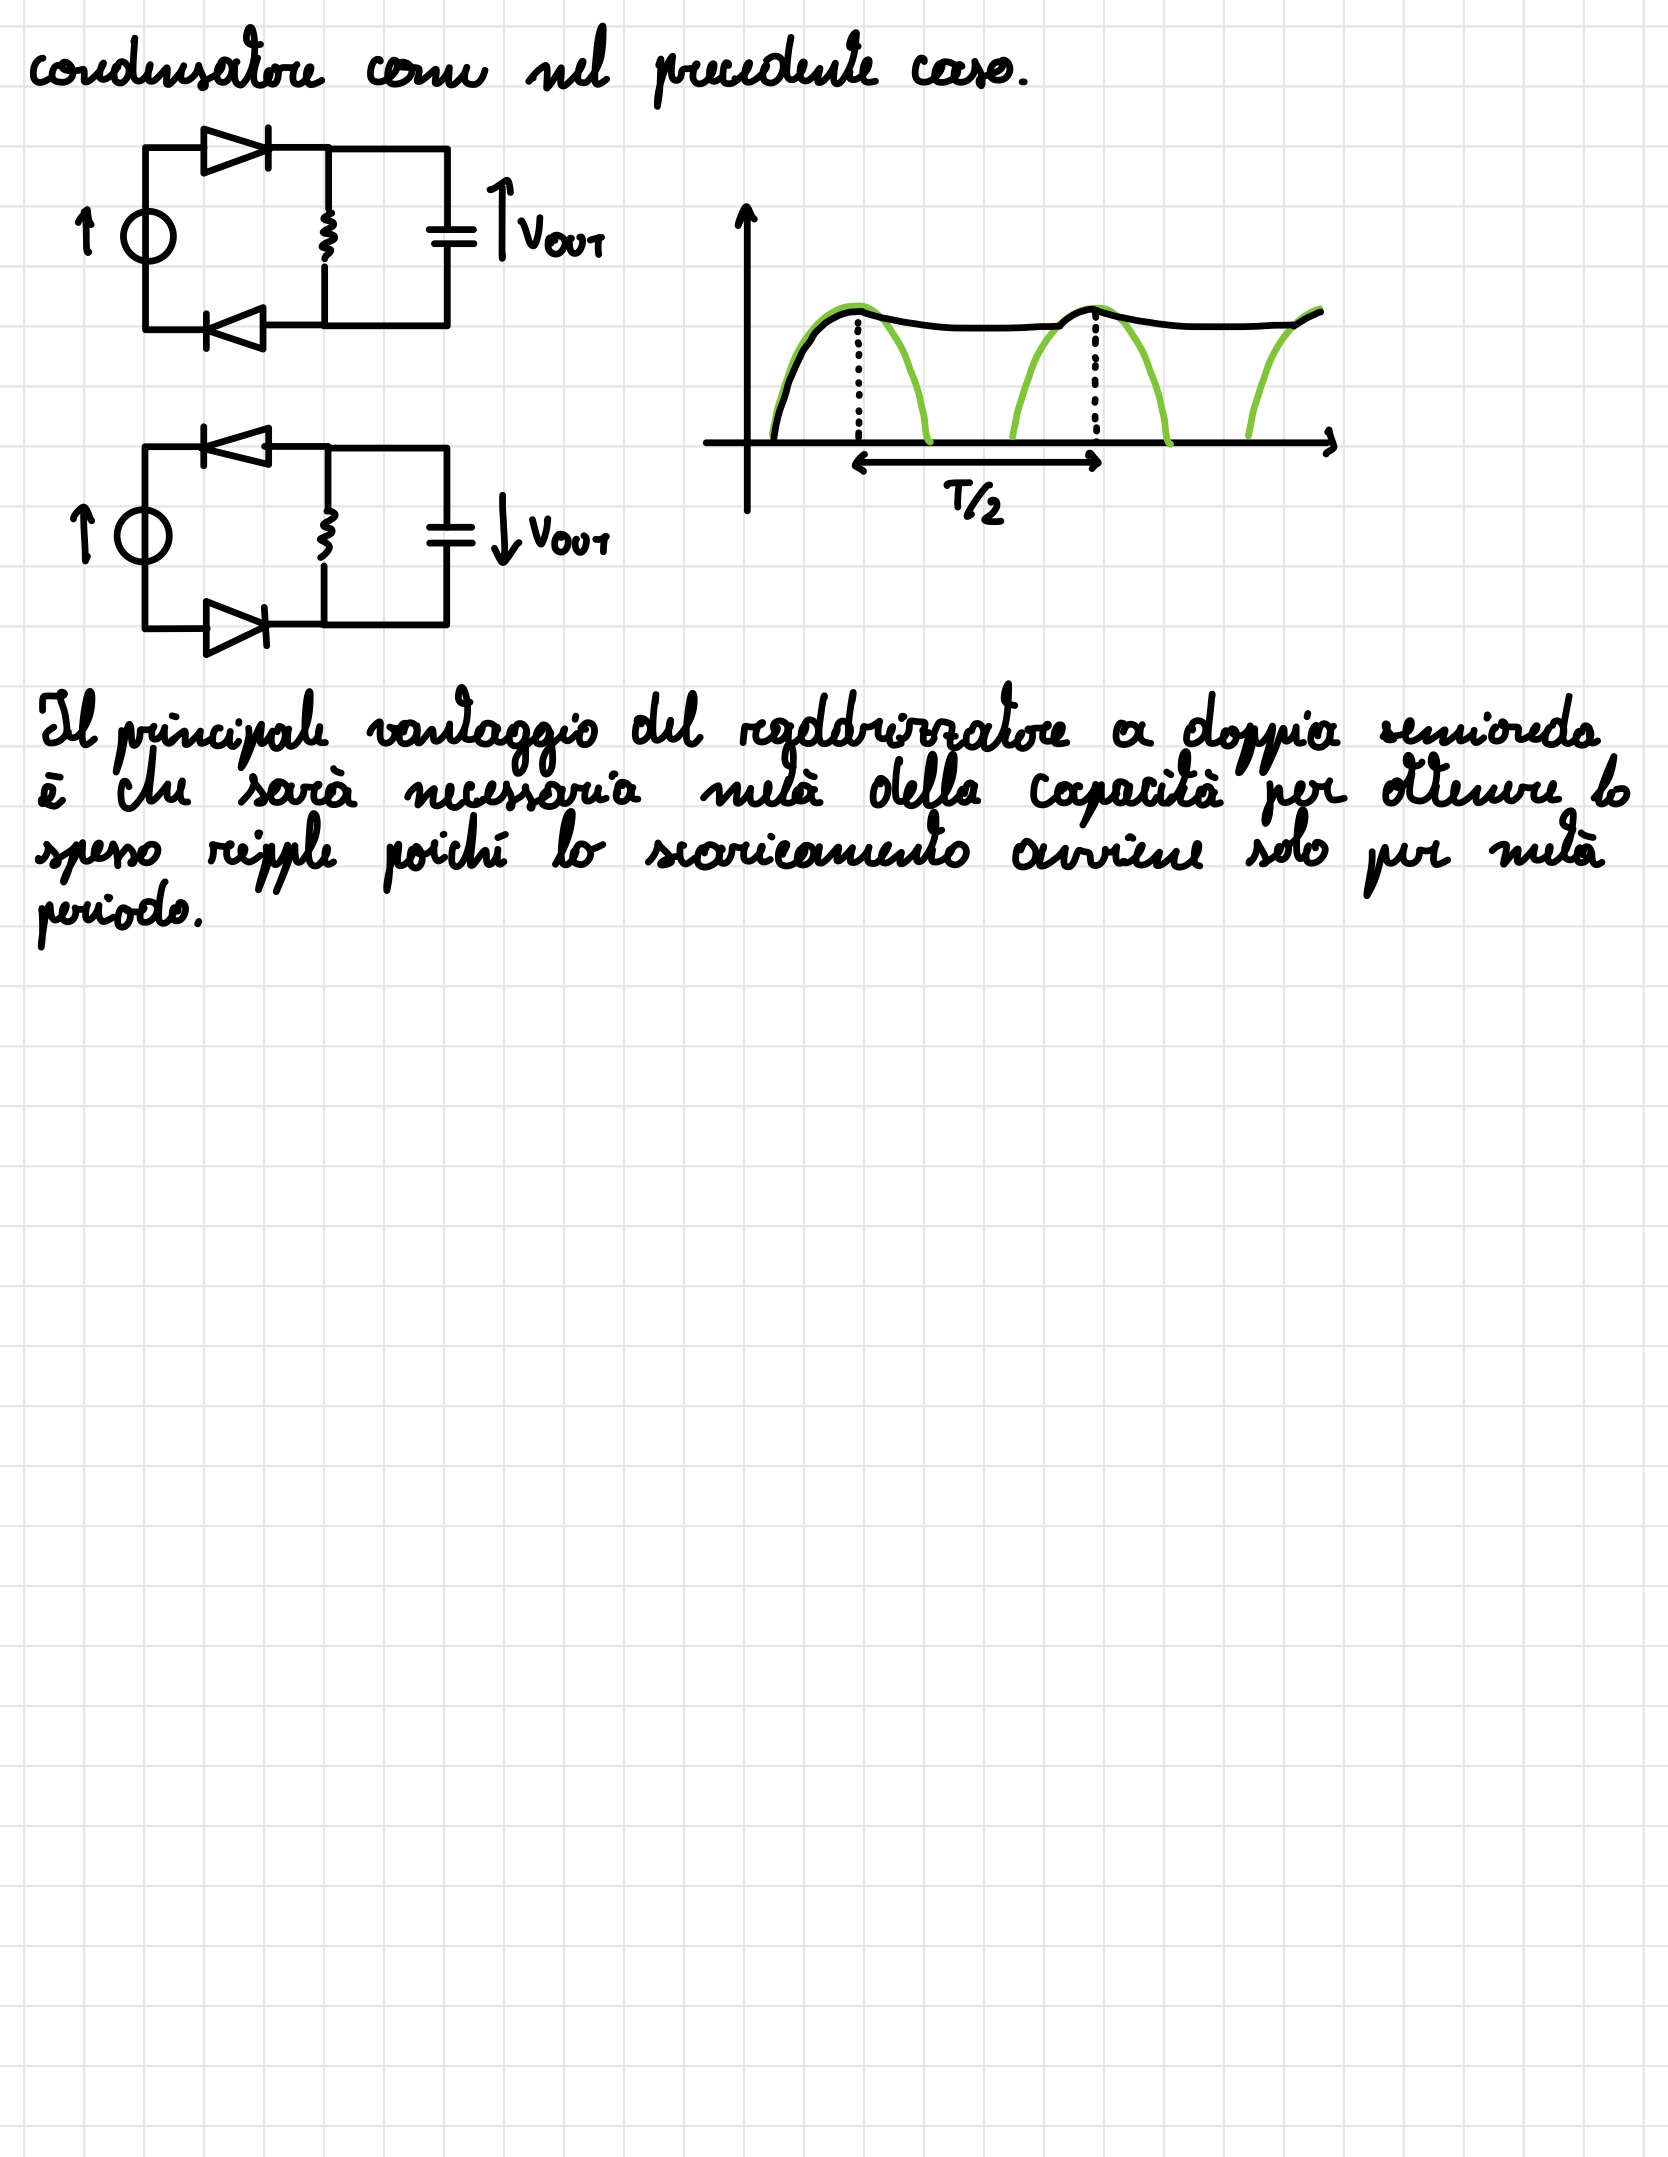 condensatore come nel precedente caso.
VOUT
T/2
VOUT
Il principale vantaggio del raddrizzatore a doppia semionda
è che sarà necessaria metà della capacità per ottenere lo
spesso ripple poiché lo scaricamento avviene solo per metà
periodo.